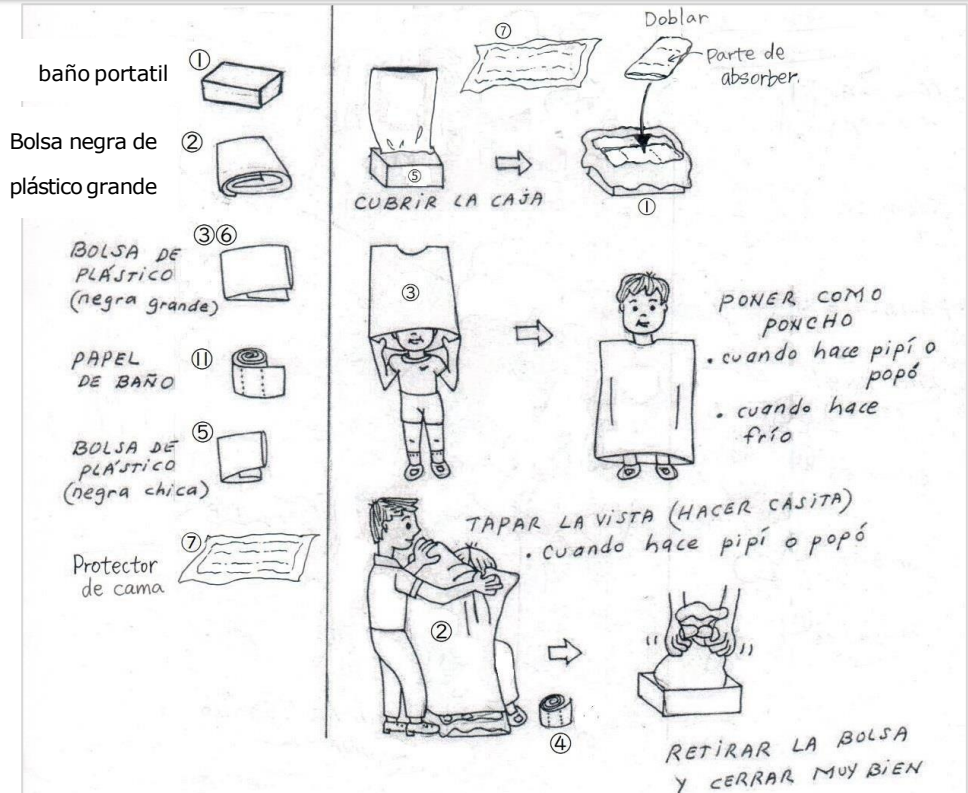 ①
baño portatil
②
Bolsa negra de
plástico grande
③⑥
BOLSA DE
PLÁSTICO
(negra grande)
⑪
PAPEL
DE BAÑO
⑤
BOLSA DE
PLÁSTICO
(negra chica)
⑦
Protector
de cama
⑦
Doblar
Parte de
absorber.
⑤
CUBRIR LA CAJA
①
③
PONER COMO
PONCHO
• cuando hace pipí o
popó
• cuando hace
frío
TAPAR LA VISTA (HACER CASITA)
• Cuando hace pipí o popó
②
④
RETIRAR LA BOLSA
Y CERRAR MUY BIEN